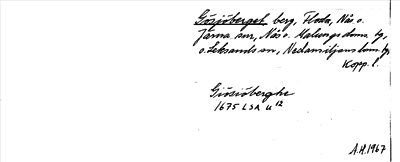 Gösjöberget berg, Floda, Nås o.
Järna snr, Nås o. Malungs doms tg,
o. Leksands sn, Nedansiljans doms. tg,
Kopp. l.
Giösiöberghe
1675 LSA u 12
A.H. 1967